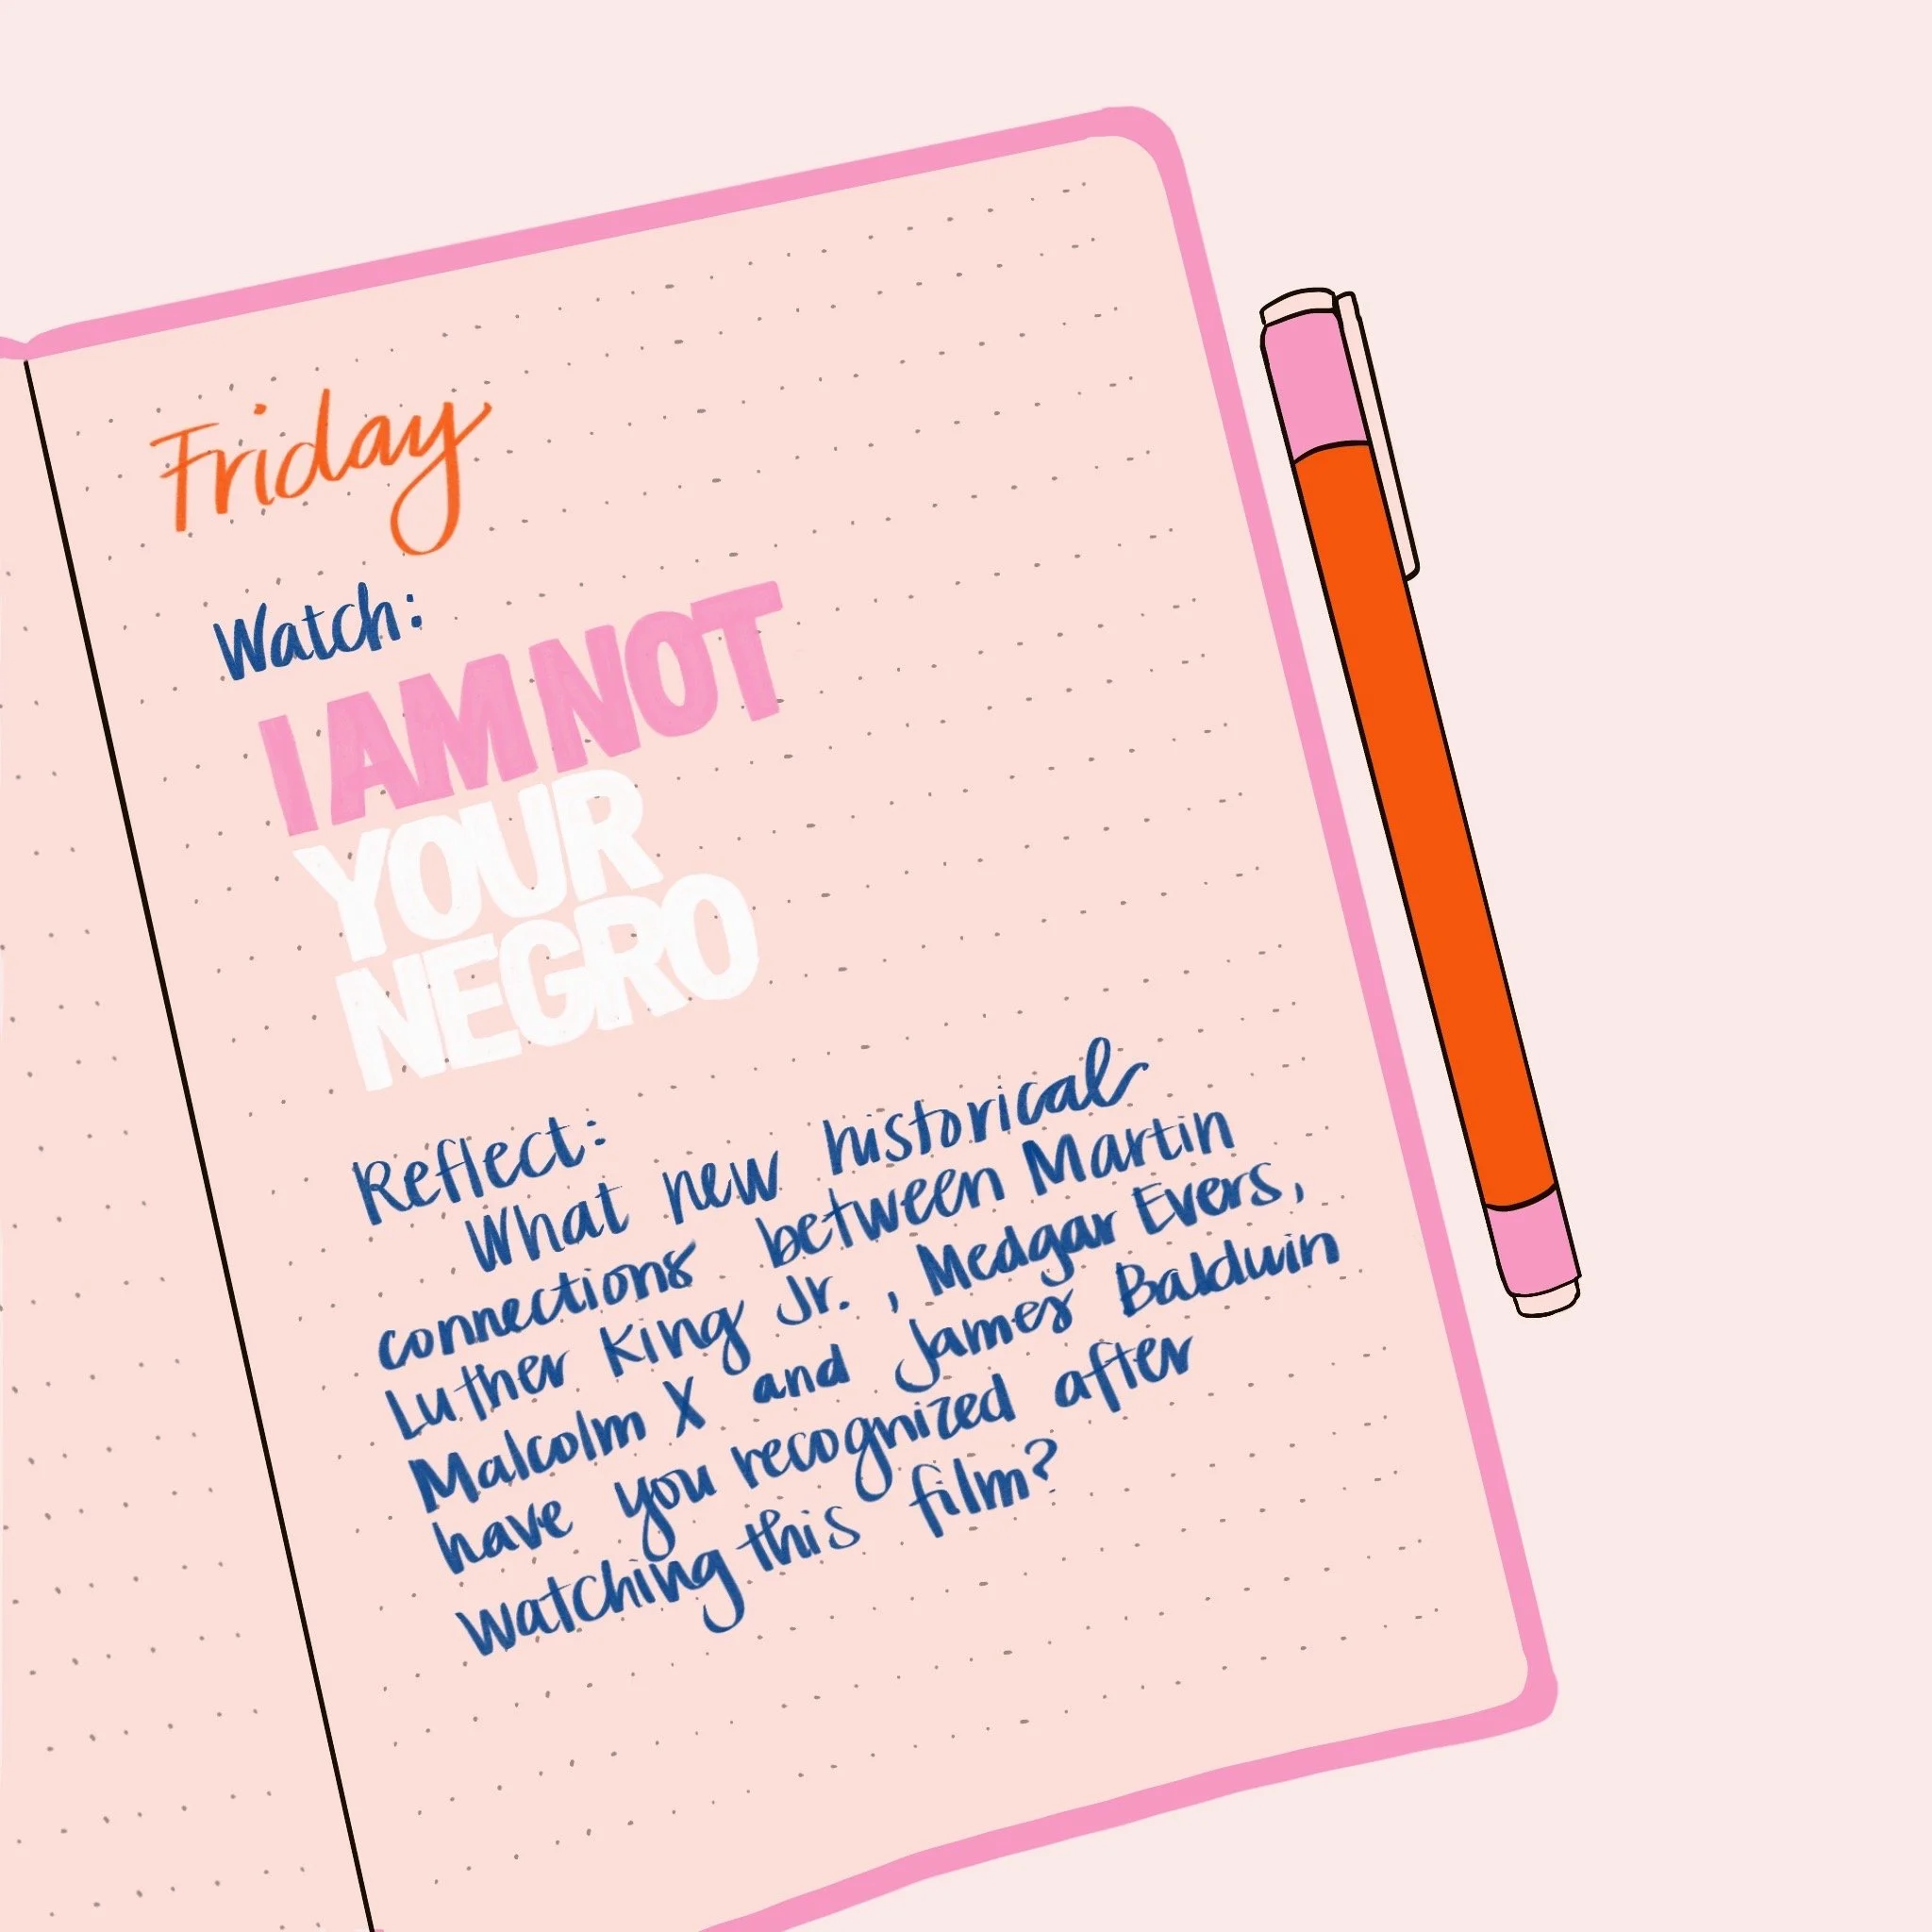 Friday
Watch:
I AM NOT
YOUR
NEGRO
Reflect:
What new historical
connections between Martin
Luther King Jr., Medgar Evers,
Malcolm X and James Baldwin
have you recognized after
watching this film?